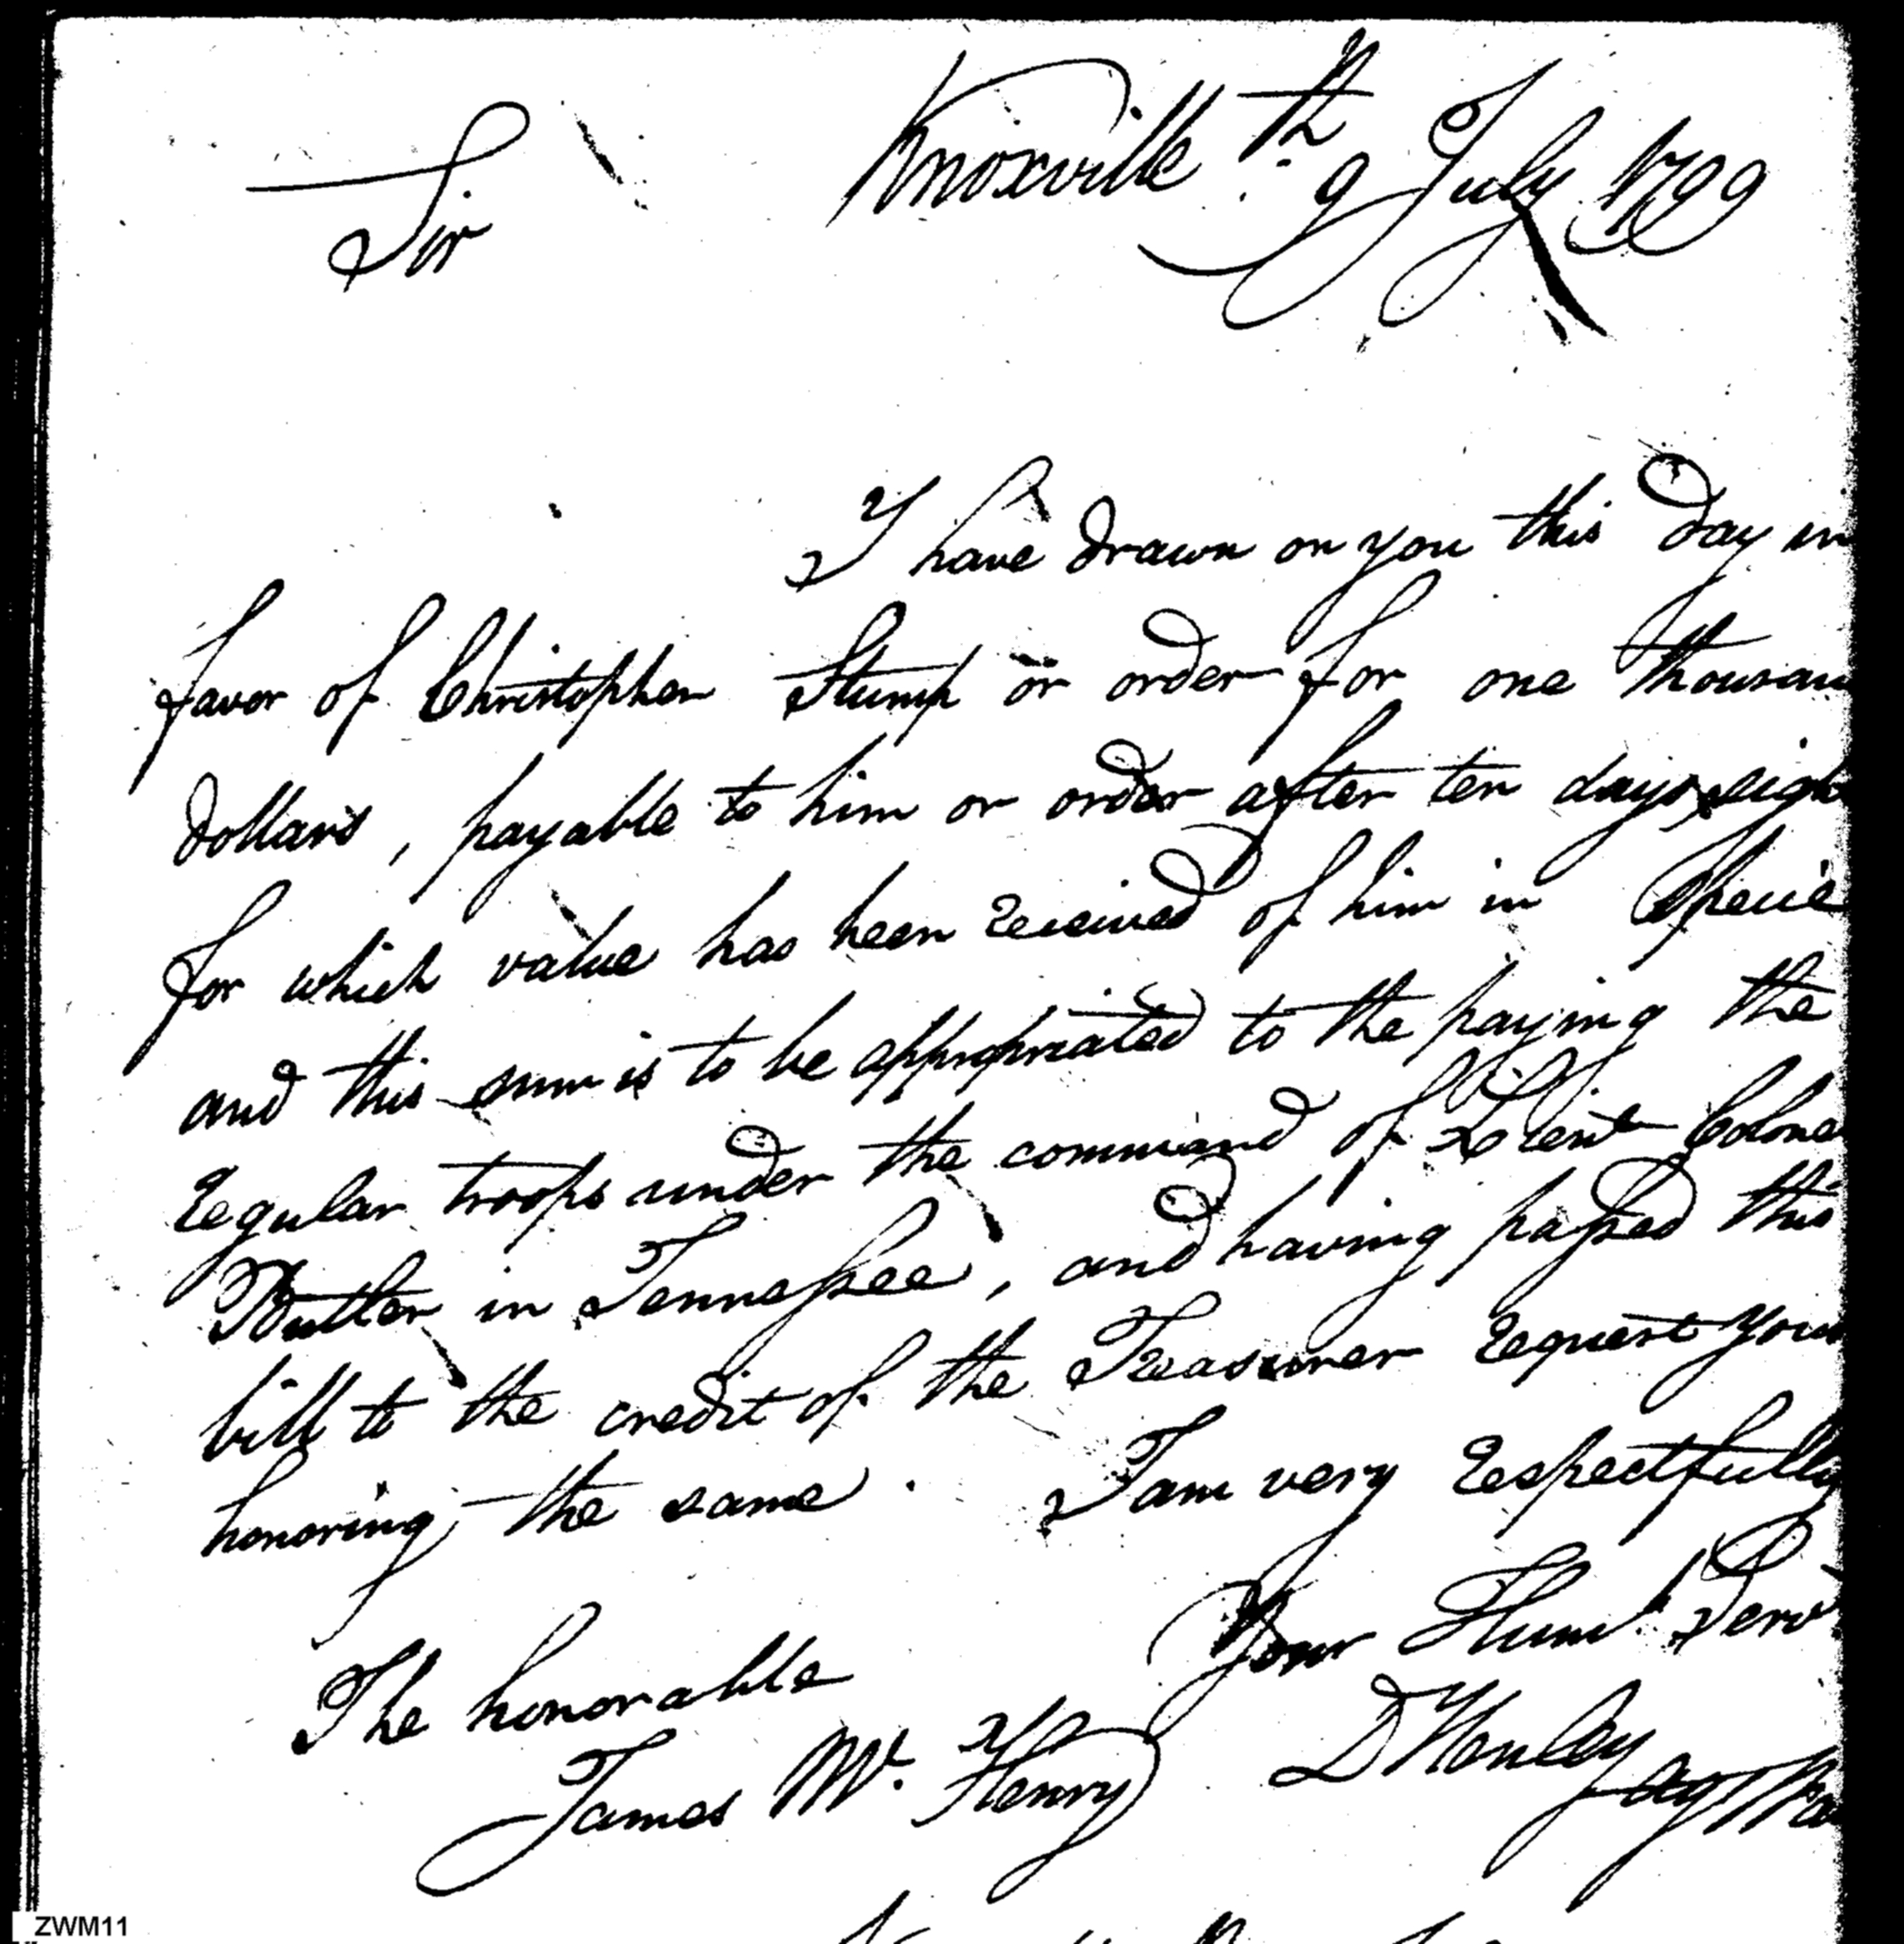 Knoxville 9th July 1799
Sir
I have drawn on you this day in
favor of Christopher Stump or order for one thousan
dollars, payable to him or order after ten days sigh
for which value has been received of him in Specie
and this sum is to be appropriated to the paying the
regular troops under the command of Lieut Colone
Butler in Tennessee, and having passed this
bill to the credit of the Treasurer request your
honoring the same. I am very respectfully
Your Humb Serv
The honorable
D Henley
James Mc. Henry
ag
ZWM11